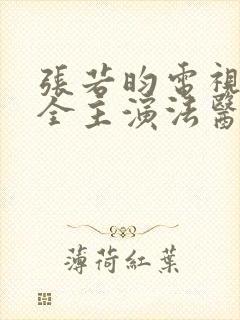 張若昀電視
全主演法醫
薄荷紅葉